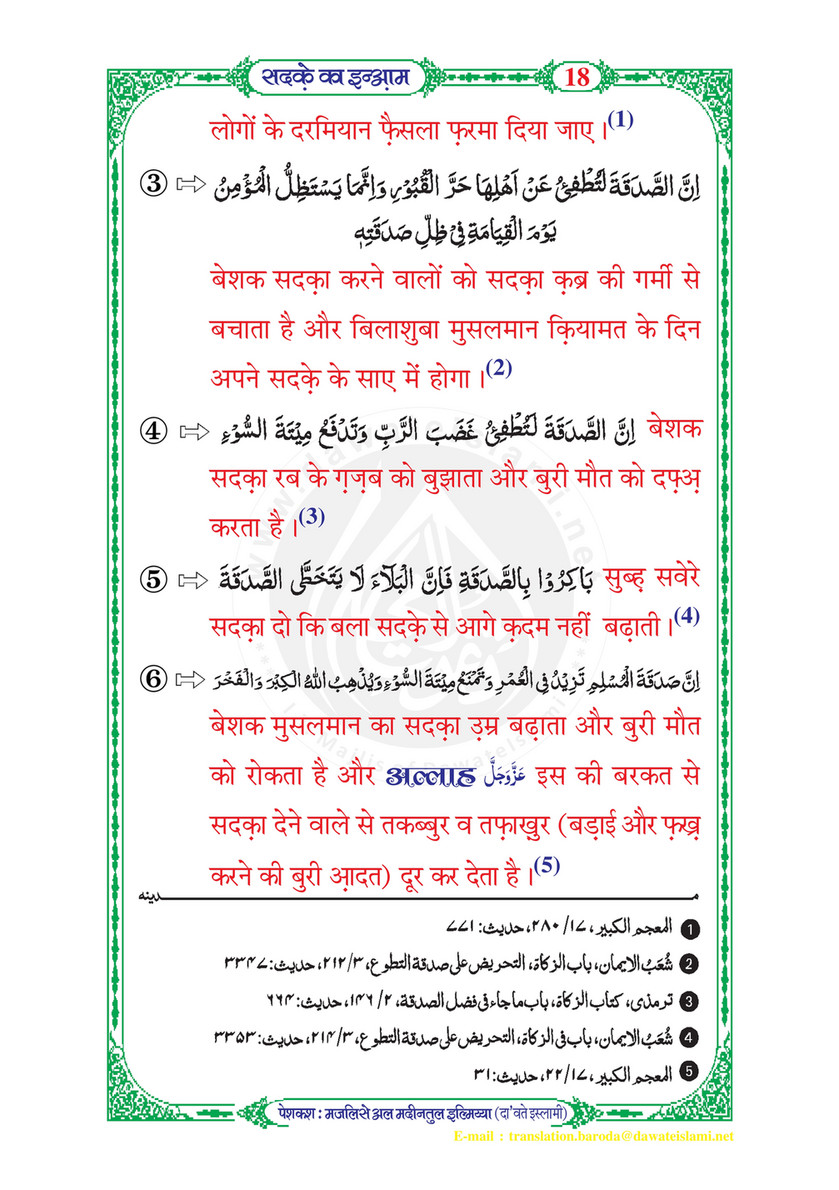 सदक़े का इन्आ़म 18
लोगों के दरमियान फ़ैसला फ़रमा दिया जाए ।(1)
③ ⇨ اِنَّ الصَّدَقَةَ لَتُطْفِئُ عَنْ اَهْلِهَا حَرَّ الْقُبُوْرِ وَاِنَّمَا يَسْتَظِلُّ الْمُؤْمِنُ
يَوْمَ الْقِيَامَةِ فِىْ ظِلِّ صَدَقَتِهٖ
बेशक सदक़ा करने वालों को सदक़ा क़ब्र की गर्मी से
बचाता है और बिलाशुबा मुसलमान क़ियामत के दिन
अपने सदक़े के साए में होगा ।(2)
④ ⇨ اِنَّ الصَّدَقَةَ لَتُطْفِئُ غَضَبَ الرَّبِّ وَتَدْفَعُ مِيْتَةَ السُّوْءِ बेशक
सदक़ा रब के ग़ज़ब को बुझाता और बुरी मौत को दफ़्अ़
करता है ।(3)
⑤ ⇨ بَاكِرُوْا بِالصَّدَقَةِ فَاِنَّ الْبَلَآءَ لَا يَتَخَطَّى الصَّدَقَةَ सुब्ह़ सवेरे
सदक़ा दो कि बला सदक़े से आगे क़दम नहीं बढ़ाती ।(4)
⑥ ⇨ اِنَّ صَدَقَةَ الْمُسْلِمِ تَزِيْدُ فِى الْعُمْرِ وَتَمْنَعُ مِيْتَةَ السُّوْءِ وَيُذْهِبُ اللهُ الْكِبْرَ وَالْفَخْرَ
बेशक मुसलमान का सदक़ा उ़म्र बढ़ाता और बुरी मौत
को रोकता है और अल्लाह عَزَّوَجَلَّ इस की बरकत से
सदक़ा देने वाले से तकब्बुर व तफ़ाख़ुर (बड़ाई और फ़ख़्र
करने की बुरी आ़दत) दूर कर देता है ।(5)
مـــدينه
1 المعجم الكبير، ۱۷/ ۲۸۰، حديث: ۷۷۱
2 شُعَبُ الايمان، باب الزكاة، التحريض على صدقة التطوع، ۳/ ۲۱۲، حديث: ۳۳۴۷
3 ترمذى، كتاب الزكاة، باب ماجاء فى فضل الصدقة، ۲/ ۱۴۶، حديث: ۶۶۴
4 شُعَبُ الايمان، باب فى الزكاة، التحريض على صدقة التطوع، ۳/ ۲۱۴، حديث: ۳۳۵۳
5 المعجم الكبير، ۱۷/ ۲۲، حديث: ۳۱
पेशकश : मजलिसे अल मदीनतुल इल्मिय्या (दा'वते इस्लामी)
E-mail : translation.baroda@dawateislami.net